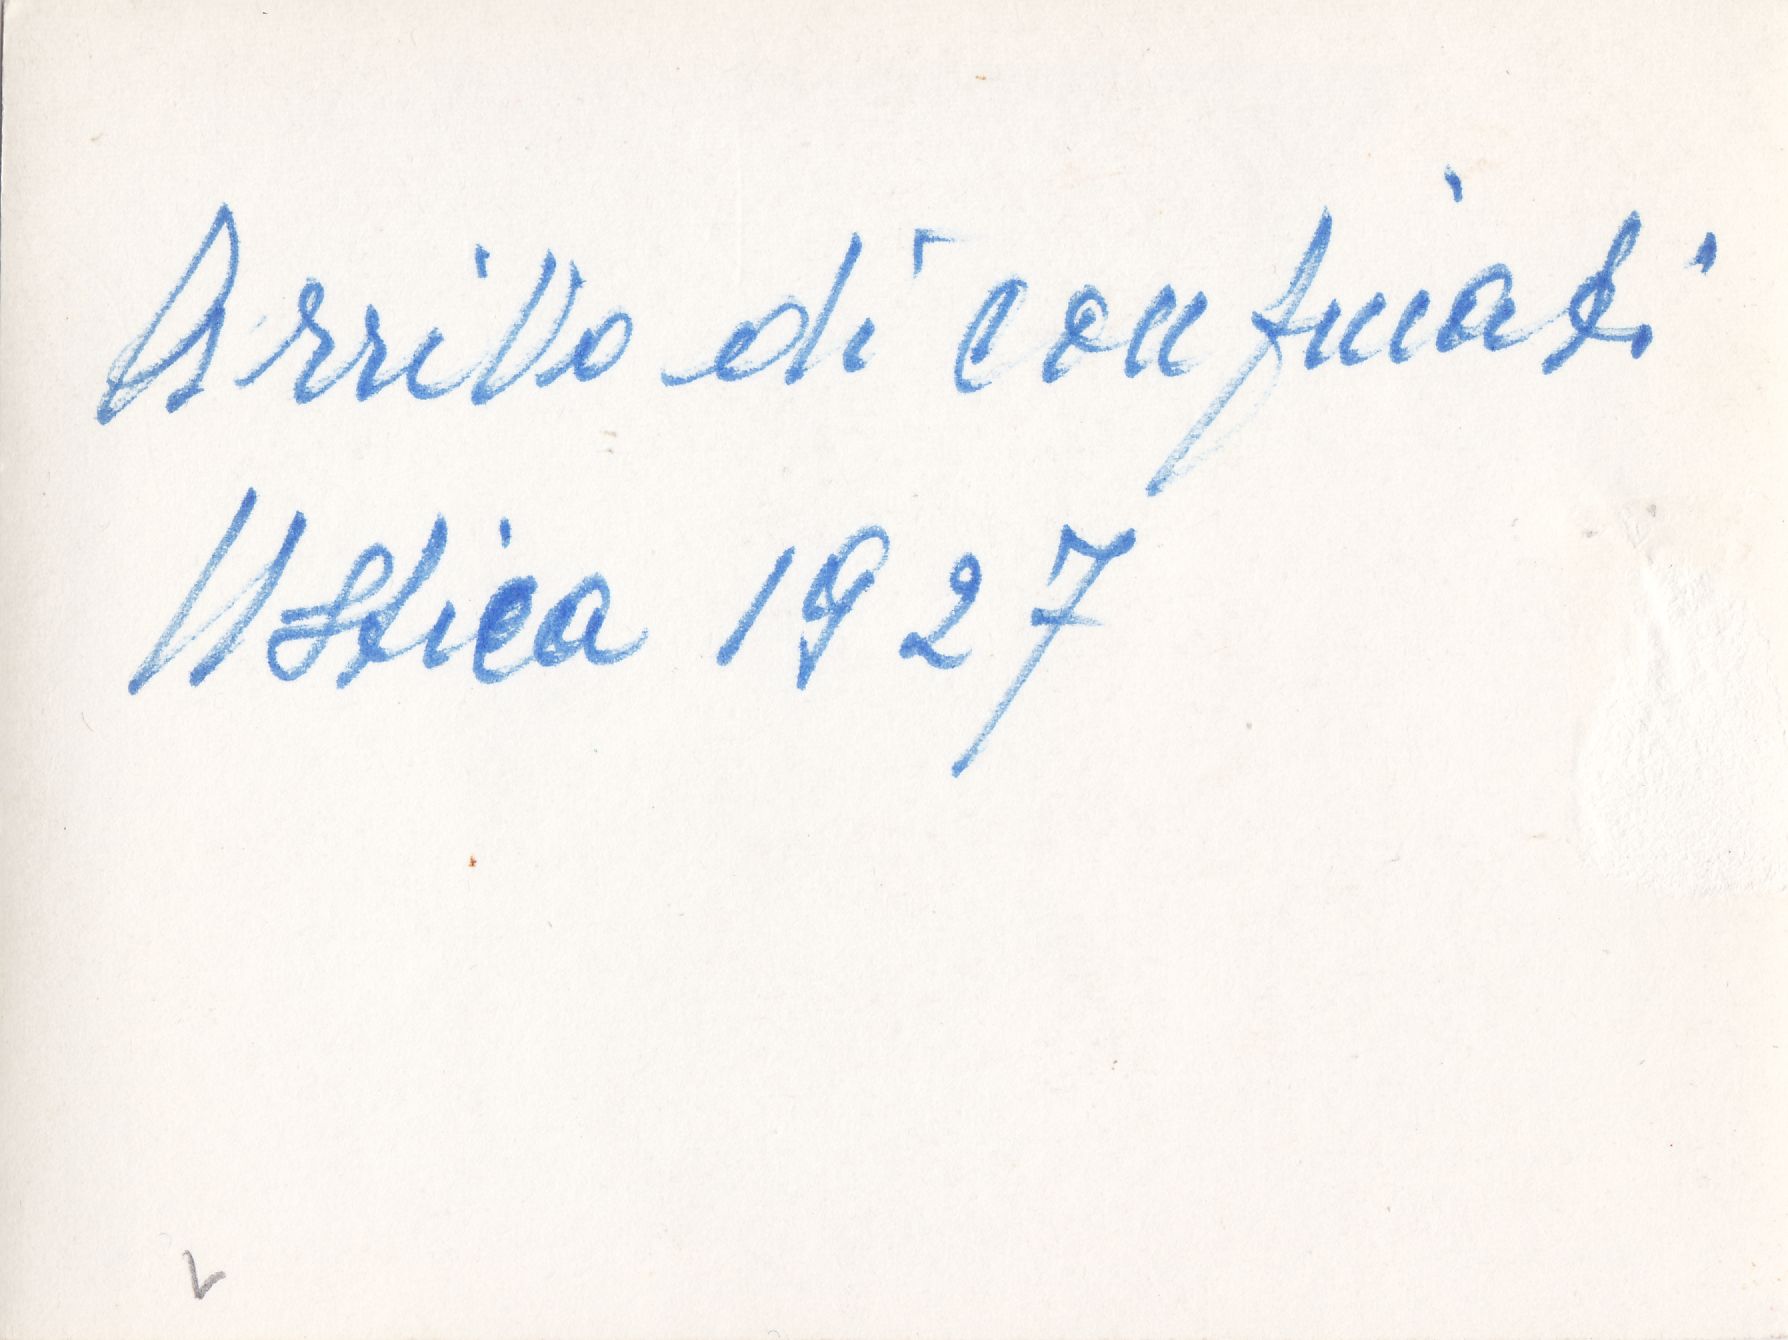 Arrivo di confinati
Ustica 1927